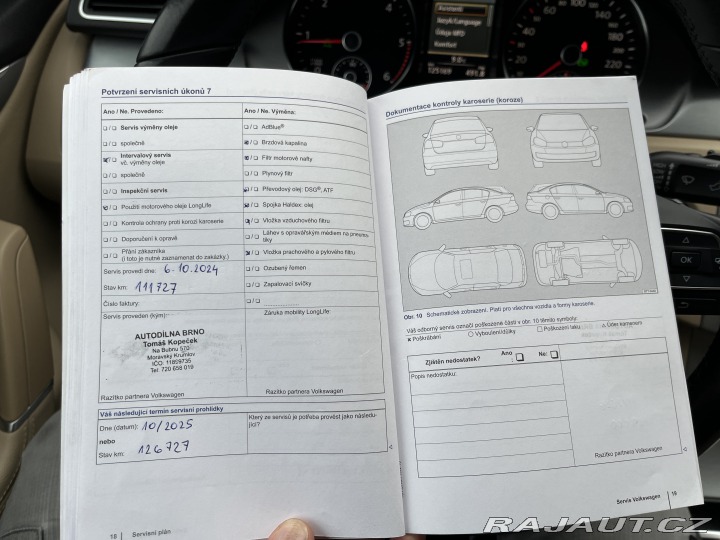 Asistenti
Jazyk/Language
Údaje MFD
Komfort
9.0
125169
491.8
1
5
6
80
100
120
160
180
200
220
20
OK
Potvrzení servisních úkonů 7
Ano / Ne. Provedeno:
Ano / Ne. Výměna:
Servis výměny oleje
AdBlue®
společně
Brzdová kapalina
Intervalový servis
vč. výměny oleje
Filtr motorové nafty
společně
Plynový filtr
Inspekční servis
Převodový olej: DSG®, ATF
Použití motorového oleje LongLife
Spojka Haldex: olej
Kontrola ochrany proti korozi karoserie
Vložka vzduchového filtru
Doporučení k opravě
Láhev s opravářským médiem na pneuma-
tiky
Přání zákazníka
(i toto je nutné zaznamenat do zakázky.)
Vložka prachového a pylového filtru
Servis provedl dne: 6.10.2024
Ozubený řemen
Stav km: 111727
Zapalovací svíčky
Číslo faktury:
Servis proveden (kým):
Záruka mobility LongLife
AUTODÍLNA BRNO
Tomáš Kopeček
Na Bubnu 570
Moravský Krumlov
IČO: 11899735
Tel: 720 658 019
Razítko partnera Volkswagen
Razítko partnera Volkswagen
Váš následující termín servisní prohlídky
Dne (datum): 10/2025
Který ze servisů je potřeba provést jako následu-
jící?
nebo
Stav km: 126727
18 Servisní plán
Dokumentace kontroly karoserie (koroze)
Obr. 10 Schematické zobrazení. Platí pro všechna vozidla a formy karoserie.
Váš odborný servis označí poškozené části v obr. 10 těmito symboly:
× Poškrábání
Vyboulení/důlky
Poškození laku
Úder kamenem
Zjištěn nedostatek?
Ano
:
Ne:
Popis nedostatku:
Razítko partnera Volkswagen
Servis Volkswagen 19
RAJAUT.CZ